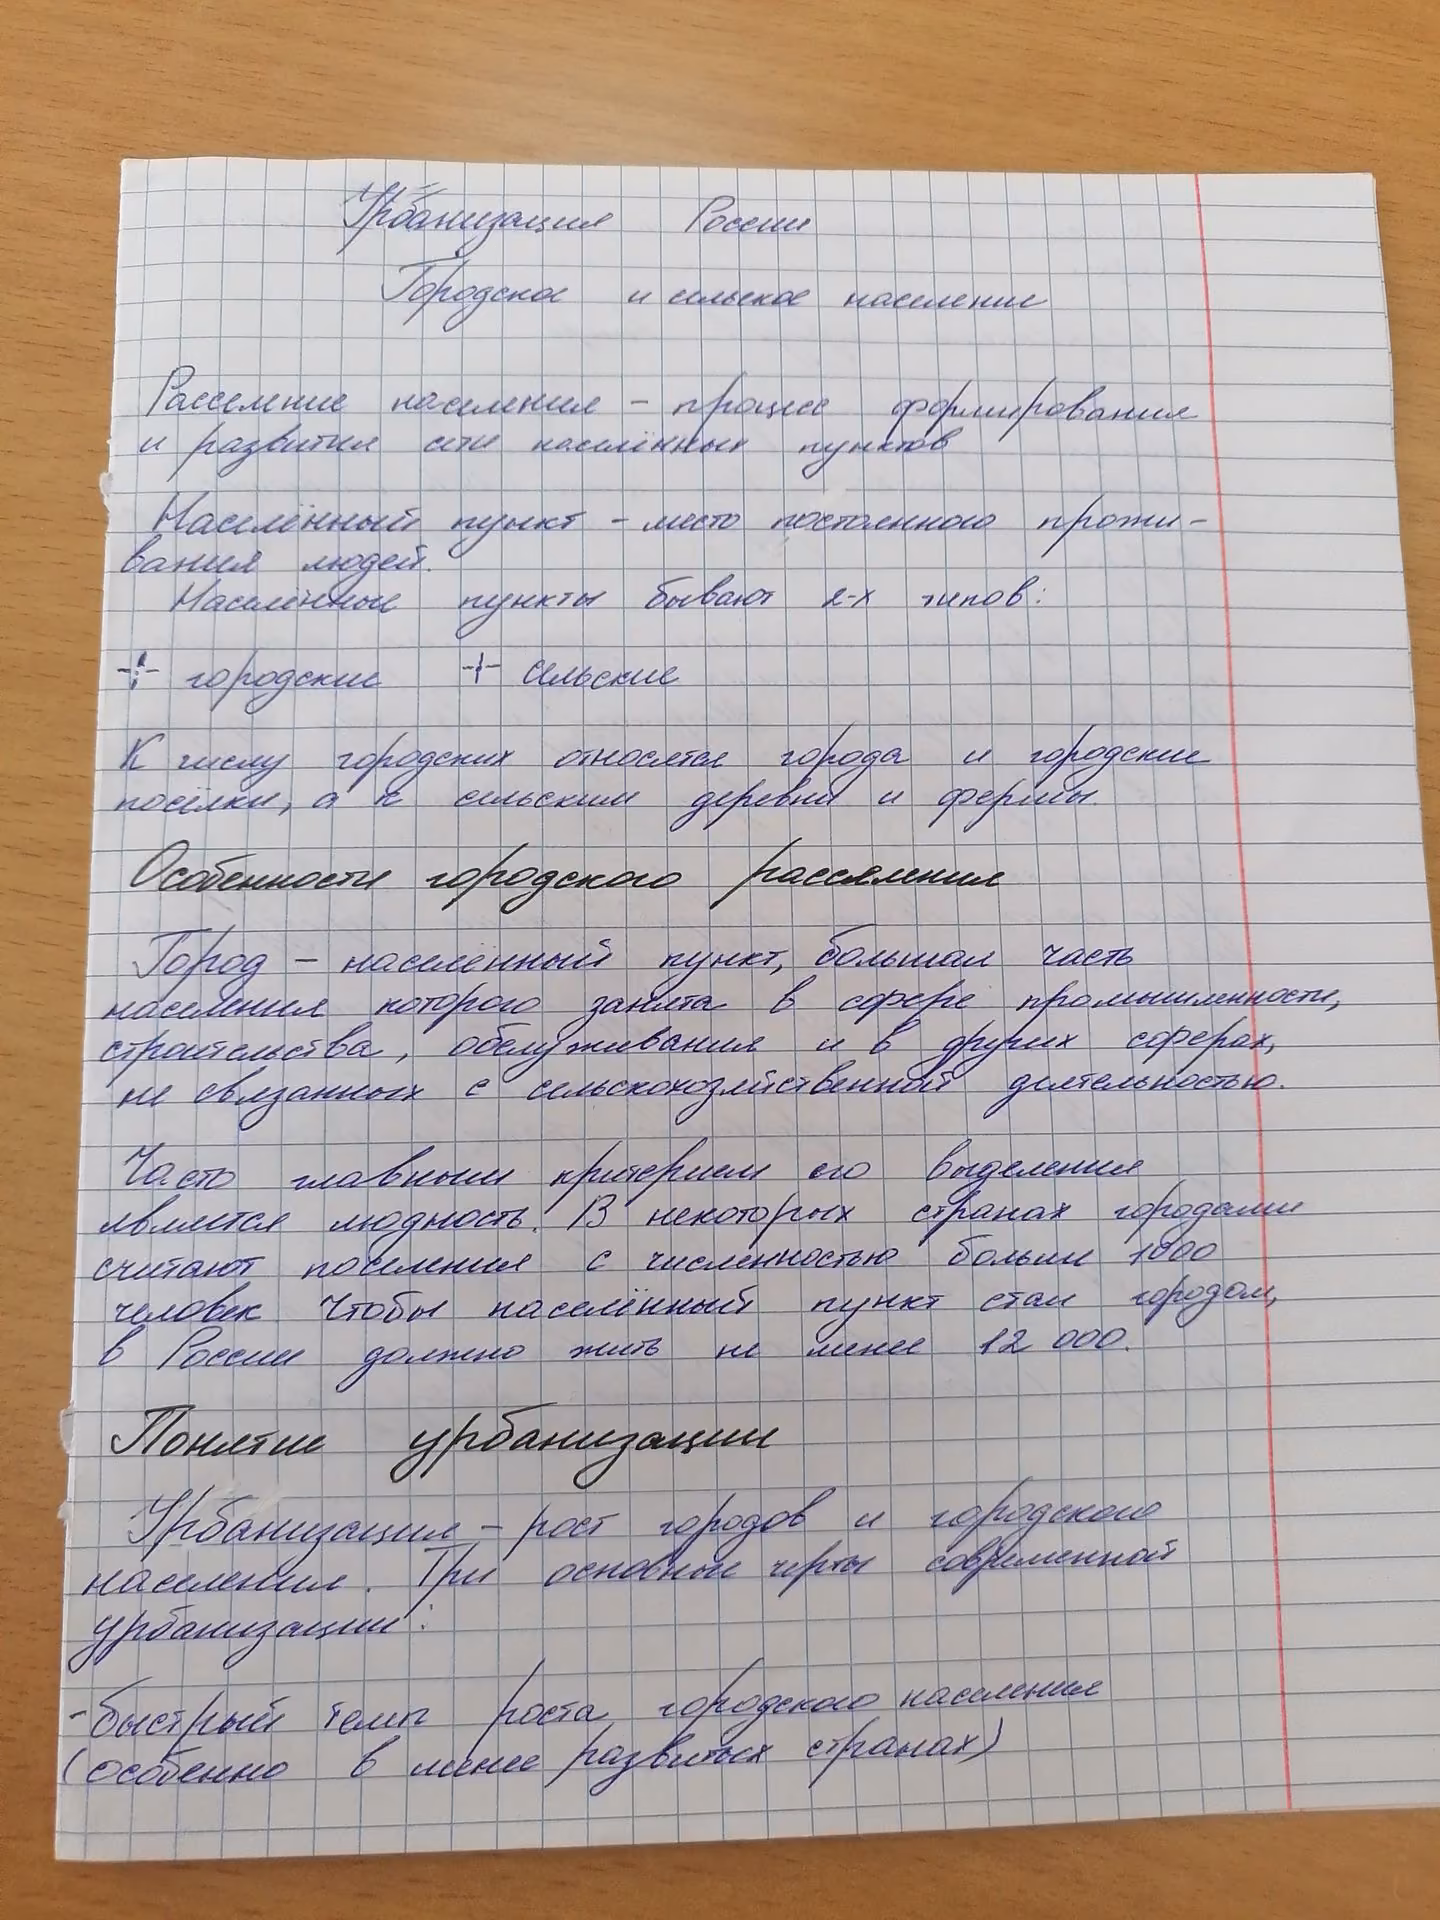 Урбанизация России
Городское и сельское население
Расселение населения – процесс формирования
и развития сети населённых пунктов
Населённый пункт – место постоянного прожи-
вания людей.
Населённые пункты бывают 2-х типов:
городские + сельские
К числу городских относятся города и городские
посёлки, а к сельским деревни и фермы.
Особенности городского расселения
Город – населённый пункт, большая часть
населения которого занята в сфере промышленности,
строительства, обслуживания и в других сферах,
не связанных с сельскохозяйственной деятельностью.
Часто главным критерием его выделения
является людность. В некоторых странах городами
считают поселения с численностью больше 1000
человек. Чтобы населённый пункт стал городом,
в России должно жить не менее 12 000.
Понятие урбанизации
Урбанизация – рост городов и городского
населения. Три основные черты современной
урбанизации:
-быстрый темп роста городского населения
(особенно в менее развитых странах)